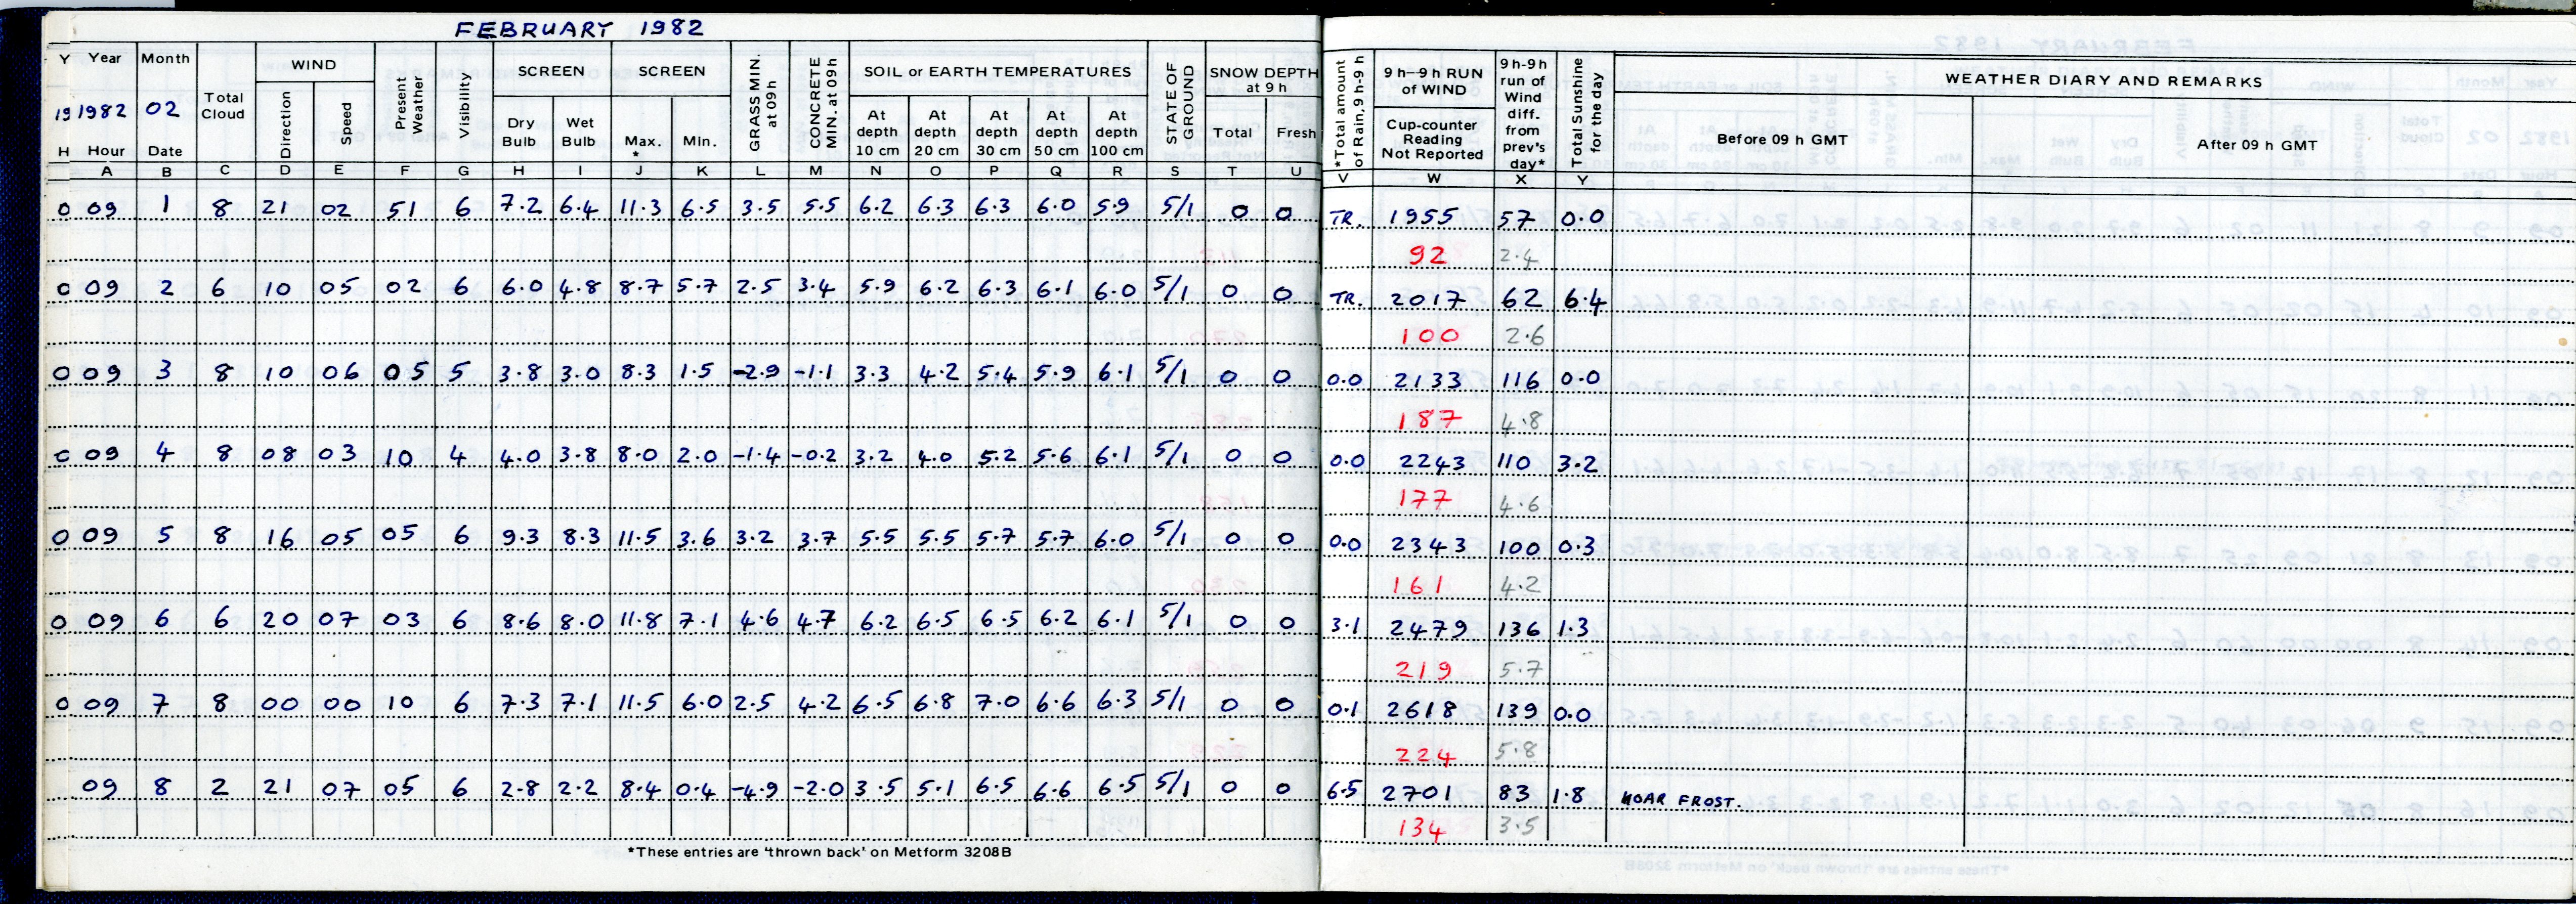 FEBRUARY 1982
Y Year Month Total Cloud WIND Present Weather Visibility SCREEN SCREEN GRASS MIN. at 09h CONCRETE MIN. at 09h SOIL or EARTH TEMPERATURES STATE OF GROUND SNOW DEPTH at 9 h *Total amount of Rain, 9 h-9 h 9 h–9 h RUN of WIND 9 h-9h run of Wind diff. from prev's day* Total Sunshine for the day WEATHER DIARY AND REMARKS
19 1982 02 Direction Speed Dry Bulb Wet Bulb Max. * Min. At depth 10 cm At depth 20 cm At depth 30 cm At depth 50 cm At depth 100 cm Total Fresh Cup-counter Reading Not Reported Before 09 h GMT After 09 h GMT
H Hour Date
A B C D E F G H I J K L M N O P Q R S T U V W X Y
0 09 1 8 21 02 51 6 7.2 6.4 11.3 6.5 3.5 5.5 6.2 6.3 6.3 6.0 5.9 5/1 0 0 TR. 1955 57 0.0
92 2.4
0 09 2 6 10 05 02 6 6.0 4.8 8.7 5.7 2.5 3.4 5.9 6.2 6.3 6.1 6.0 5/1 0 0 TR. 2017 62 6.4
100 2.6
0 09 3 8 10 06 05 5 3.8 3.0 8.3 1.5 -2.9 -1.1 3.3 4.2 5.4 5.9 6.1 5/1 0 0 0.0 2133 116 0.0
187 4.8
0 09 4 8 08 03 10 4 4.0 3.8 8.0 2.0 -1.4 -0.2 3.2 4.0 5.2 5.6 6.1 5/1 0 0 0.0 2243 110 3.2
177 4.6
0 09 5 8 16 05 05 6 9.3 8.3 11.5 3.6 3.2 3.7 5.5 5.5 5.7 5.7 6.0 5/1 0 0 0.0 2343 100 0.3
161 4.2
0 09 6 6 20 07 03 6 8.6 8.0 11.8 7.1 4.6 4.7 6.2 6.5 6.5 6.2 6.1 5/1 0 0 3.1 2479 136 1.3
219 5.7
0 09 7 8 00 00 10 6 7.3 7.1 11.5 6.0 2.5 4.2 6.5 6.8 7.0 6.6 6.3 5/1 0 0 0.1 2618 139 0.0
224 5.8
09 8 2 21 07 05 6 2.8 2.2 8.4 0.4 -4.9 -2.0 3.5 5.1 6.5 6.6 6.5 5/1 0 0 6.5 2701 83 1.8 HOAR FROST.
134 3.5
*These entries are 'thrown back' on Metform 3208B